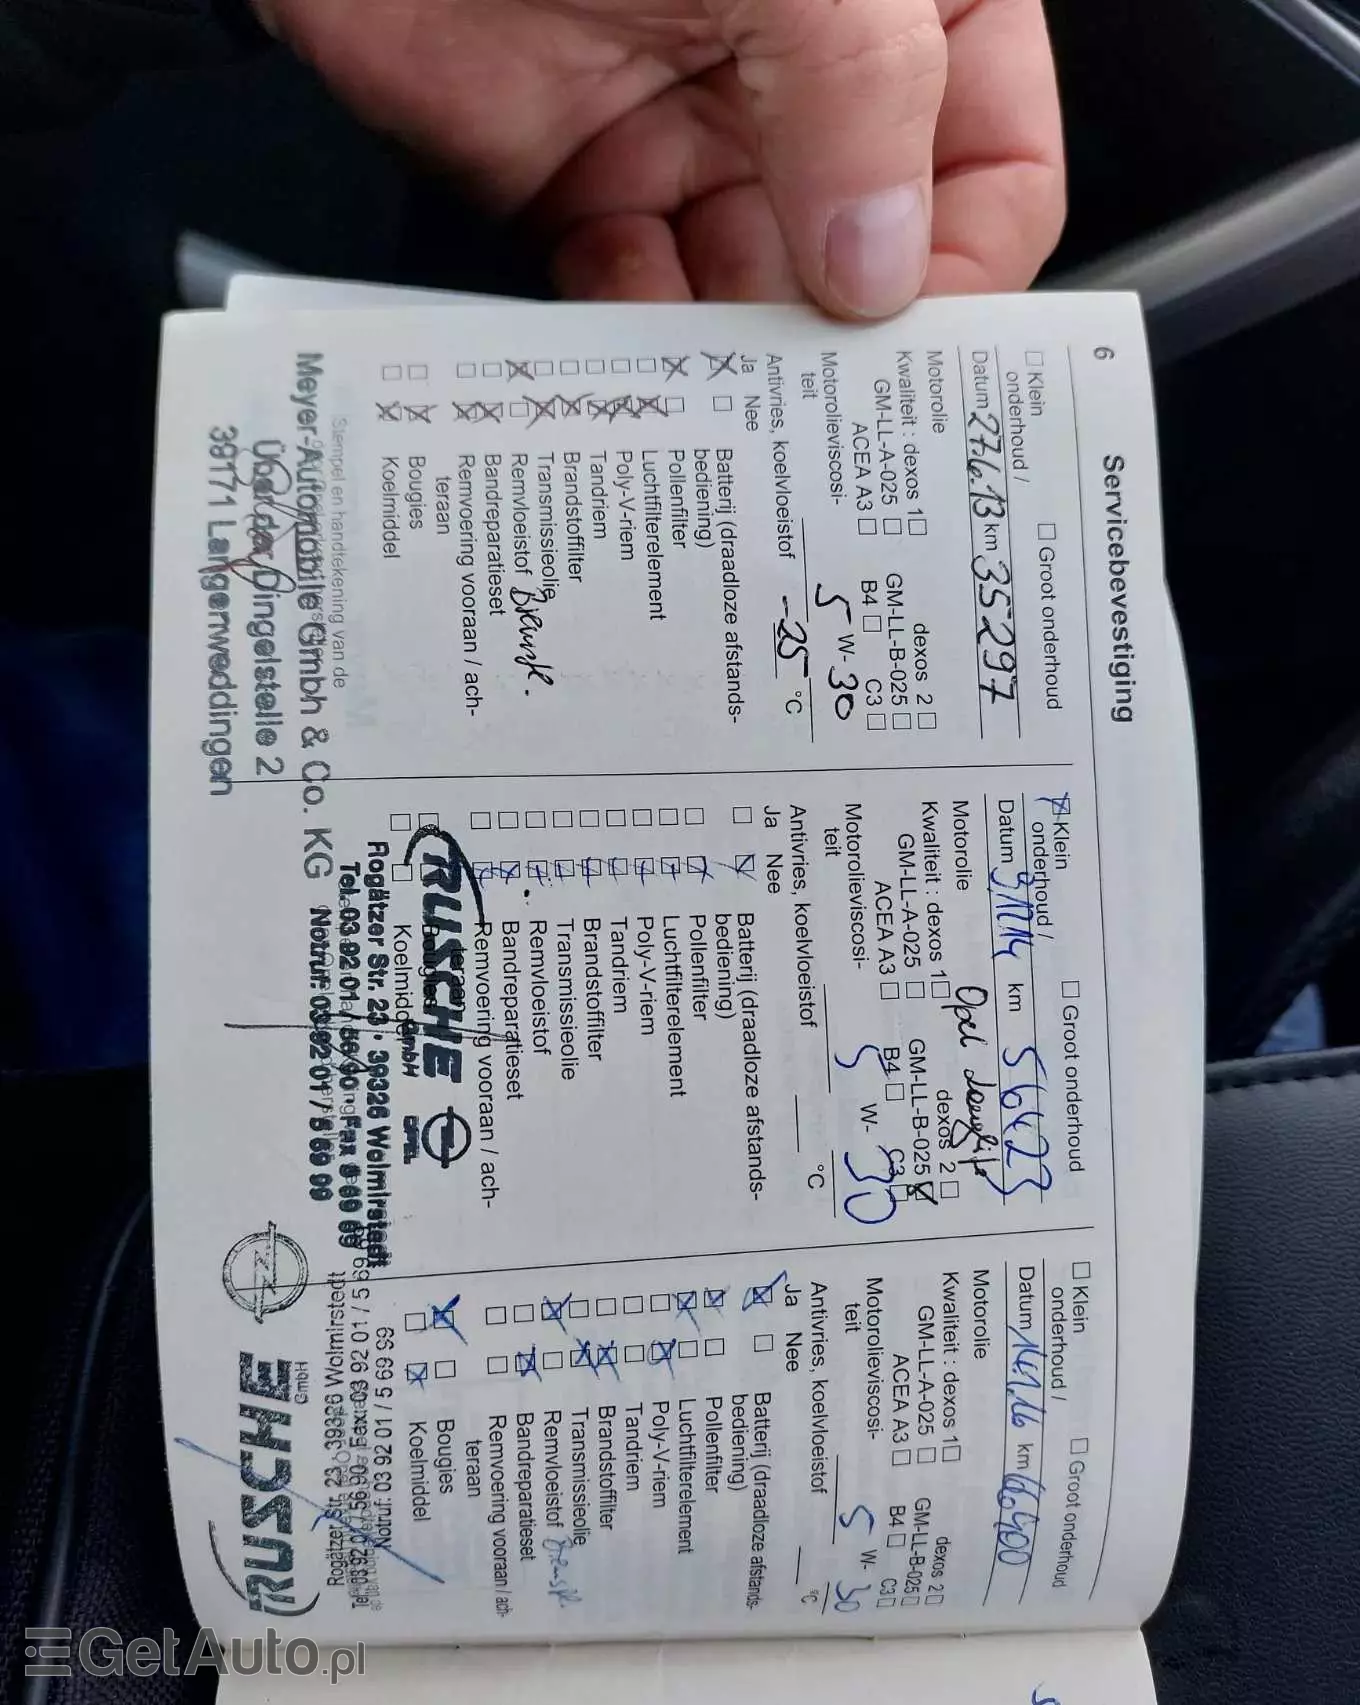 6
Servicebevestiging
Klein
onderhoud /
Groot onderhoud
Datum 27.6.13 km 35297
Motorolie
Kwaliteit : dexos 1 dexos 2
GM-LL-A-025 GM-LL-B-025
ACEA A3 B4 C3
Motorolieviscosi-
teit 5 W- 30
Antivries, koelvloeistof -25 °C
Ja Nee
Batterij (draadloze afstands-
bediening)
Pollenfilter
Luchtfilterelement
Poly-V-riem
Tandriem
Brandstoffilter
Transmissieolie
Remvloeistof Bremsfl.
Bandreparatieset
Remvoering vooraan / ach-
teraan
Bougies
Koelmiddel
Stempel en handtekening van de
Meyer-Automobile Gmbh & Co. KG
Über der Dingelstelle 2
39171 Langenweddingen
Klein
onderhoud /
Groot onderhoud
Datum 9.12.14 km 56423
Motorolie Opel
Kwaliteit : dexos 1 dexos 2
GM-LL-A-025 GM-LL-B-025
ACEA A3 B4 C3
Motorolieviscosi-
teit 5 W- 30
Antivries, koelvloeistof °C
Ja Nee
Batterij (draadloze afstands-
bediening)
Pollenfilter
Luchtfilterelement
Poly-V-riem
Tandriem
Brandstoffilter
Transmissieolie
Remvloeistof
Bandreparatieset
Remvoering vooraan / ach-
teraan
Bougies
Koelmiddel
RUSCHE
GmbH OPEL
Rogätzer Str. 23 · 39326 Wolmirstedt
Tel. 03 92 01 / 56 90 · Fax 5 69 69
Notruf: 03 92 01 / 5 69 99
Klein
onderhoud /
Groot onderhoud
Datum 14.1.16 km 66400
Motorolie
Kwaliteit : dexos 1 dexos 2
GM-LL-A-025 GM-LL-B-025
ACEA A3 B4 C3
Motorolieviscosi-
teit 5 W- 30
Antivries, koelvloeistof °C
Ja Nee
Batterij (draadloze afstands-
bediening)
Pollenfilter
Luchtfilterelement
Poly-V-riem
Tandriem
Brandstoffilter
Transmissieolie
Remvloeistof Bremsfl.
Bandreparatieset
Remvoering vooraan / ach-
teraan
Bougies
Koelmiddel
RUSCHE
GmbH
Rogätzer Str. 23, 39326 Wolmirstedt
Notruf: 03 92 01 / 5 69 99
GetAuto.pl